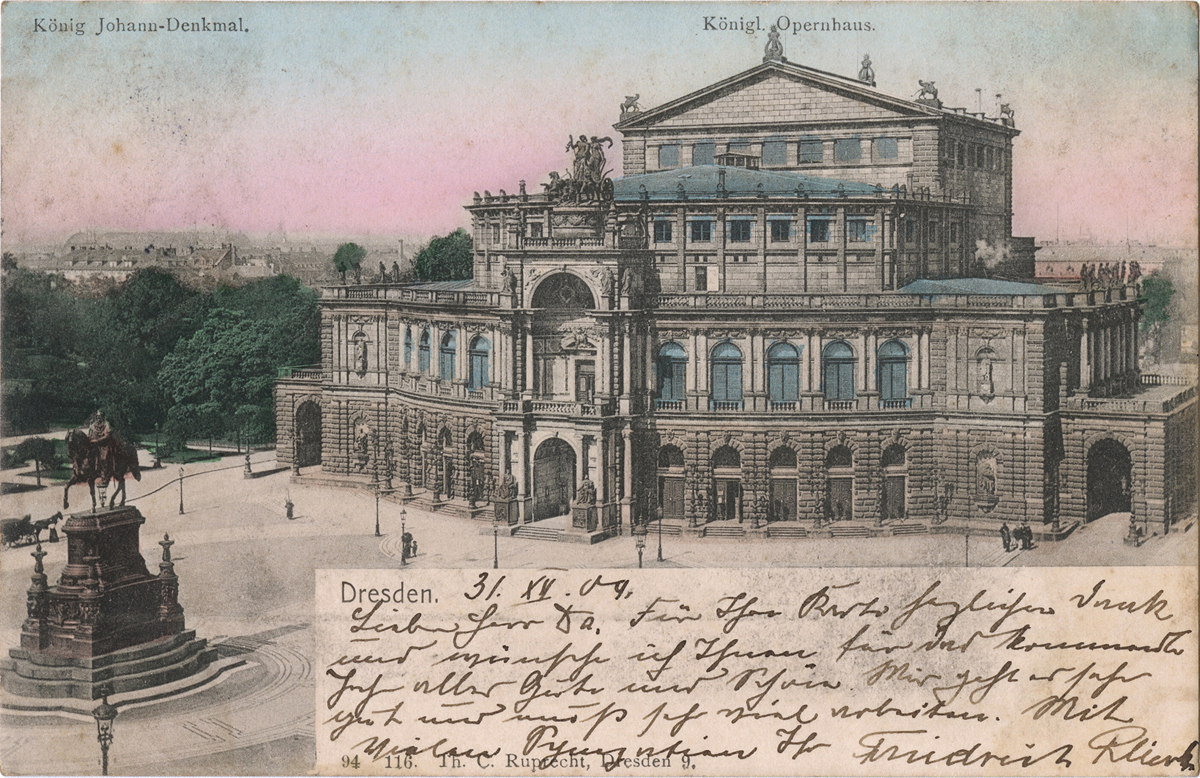 König Johann-Denkmal.
Königl. Opernhaus.
Dresden. 31. XII. 09.
Lieber Herr Da. Für Ihre Karte herzlichen Dank
und wünsche ich Ihnen für das kommende
Jahr alles Gute und Schöne. Mir geht es sehr
gut und muß sehr viel arbeiten. Mit
vielen Sympathien Ihr Friedrich
94 116. Th. C. Ruprecht, Dresden 9.